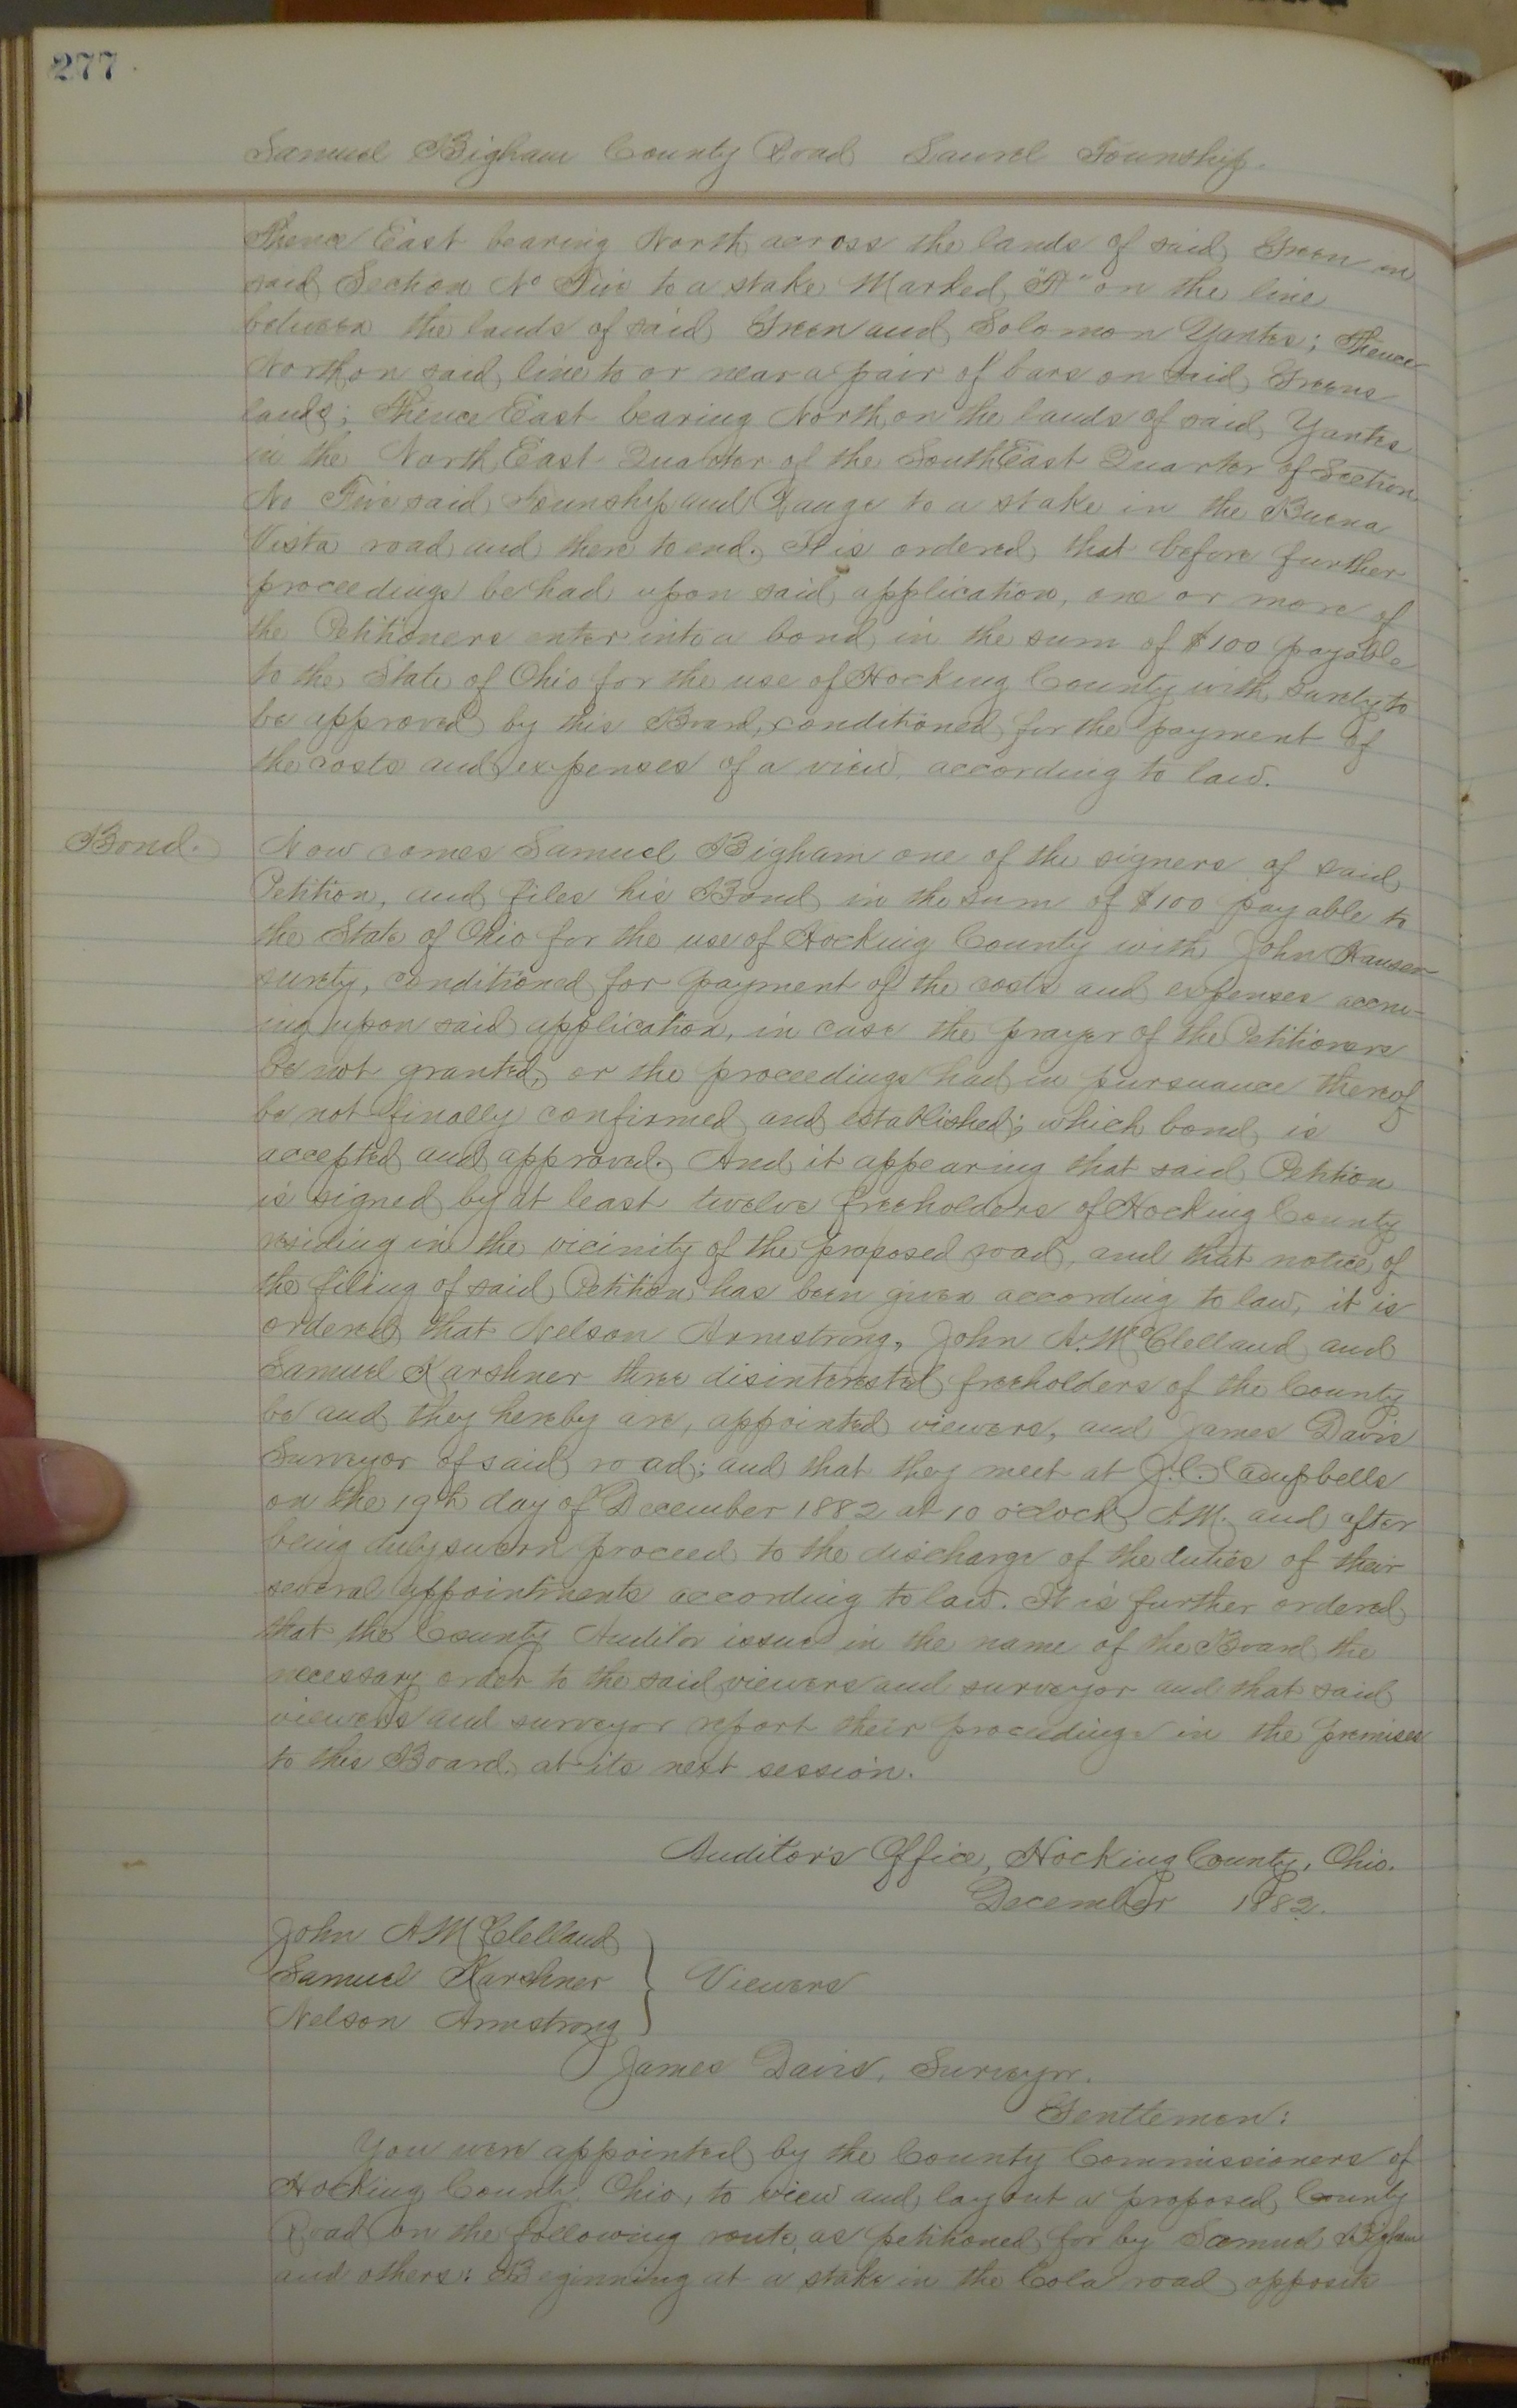 277
Samuel Bigham County Road Laurel Township.
Thence East bearing North across the lands of said Green in
said Section No Five to a stake Marked "A" on the line
between the lands of said Green and Solomon Yantes; Thence
North on said line to or near a pair of bars on said Greens
lands; Thence East bearing North on the lands of said Yantes
in the North East Quarter of the South East Quarter of Section
No Five said Township and Range to a stake in the Buena
Vista road and there to end. It is ordered that before further
proceedings be had upon said application, one or more of
the Petitioners enter into a bond in the sum of $100 payable
to the State of Ohio for the use of Hocking County with surety to
be approved by this Board, conditioned for the payment of
the costs and expenses of a view according to law.
Bond.
Now comes Samuel Bigham one of the signers of said
Petition, and files his Bond in the sum of $100 payable to
the State of Ohio for the use of Hocking County with John Hansen
surety, conditioned for payment of the costs and expenses accru-
ing upon said application, in case the prayer of the Petitioners
be not granted, or the proceedings had in pursuance thereof
be not finally confirmed and established; which bond is
accepted and approved. And it appearing that said Petition
is signed by at least twelve freeholders of Hocking County
residing in the vicinity of the proposed road, and that notice of
the filing of said Petition has been given according to law, it is
ordered that Nelson Armstrong, John A. McClelland and
Samuel Karshner three disinterested freeholders of the County
be and they hereby are, appointed viewers, and James Davis
Surveyor of said road; and that they meet at J.C. Campbells
on the 19th day of December 1882 at 10 o'clock A.M. and after
being duly sworn proceed to the discharge of the duties of their
several appointments according to law. It is further ordered
that the County Auditor issue in the name of the Board the
necessary order to the said viewers and surveyor and that said
viewers and surveyor report their proceedings in the premises
to this Board at its next session.
Auditor's Office, Hocking County, Ohio.
December 1882.
John A McClelland
Samuel Karshner } Viewers
Nelson Armstrong
James Davis, Surveyor.
Gentlemen:
You were appointed by the County Commissioners of
Hocking County Ohio, to view and lay out a proposed County
Road on the following route, as petitioned for by Samuel Bigham
and others: Beginning at a stake in the Cola road opposite